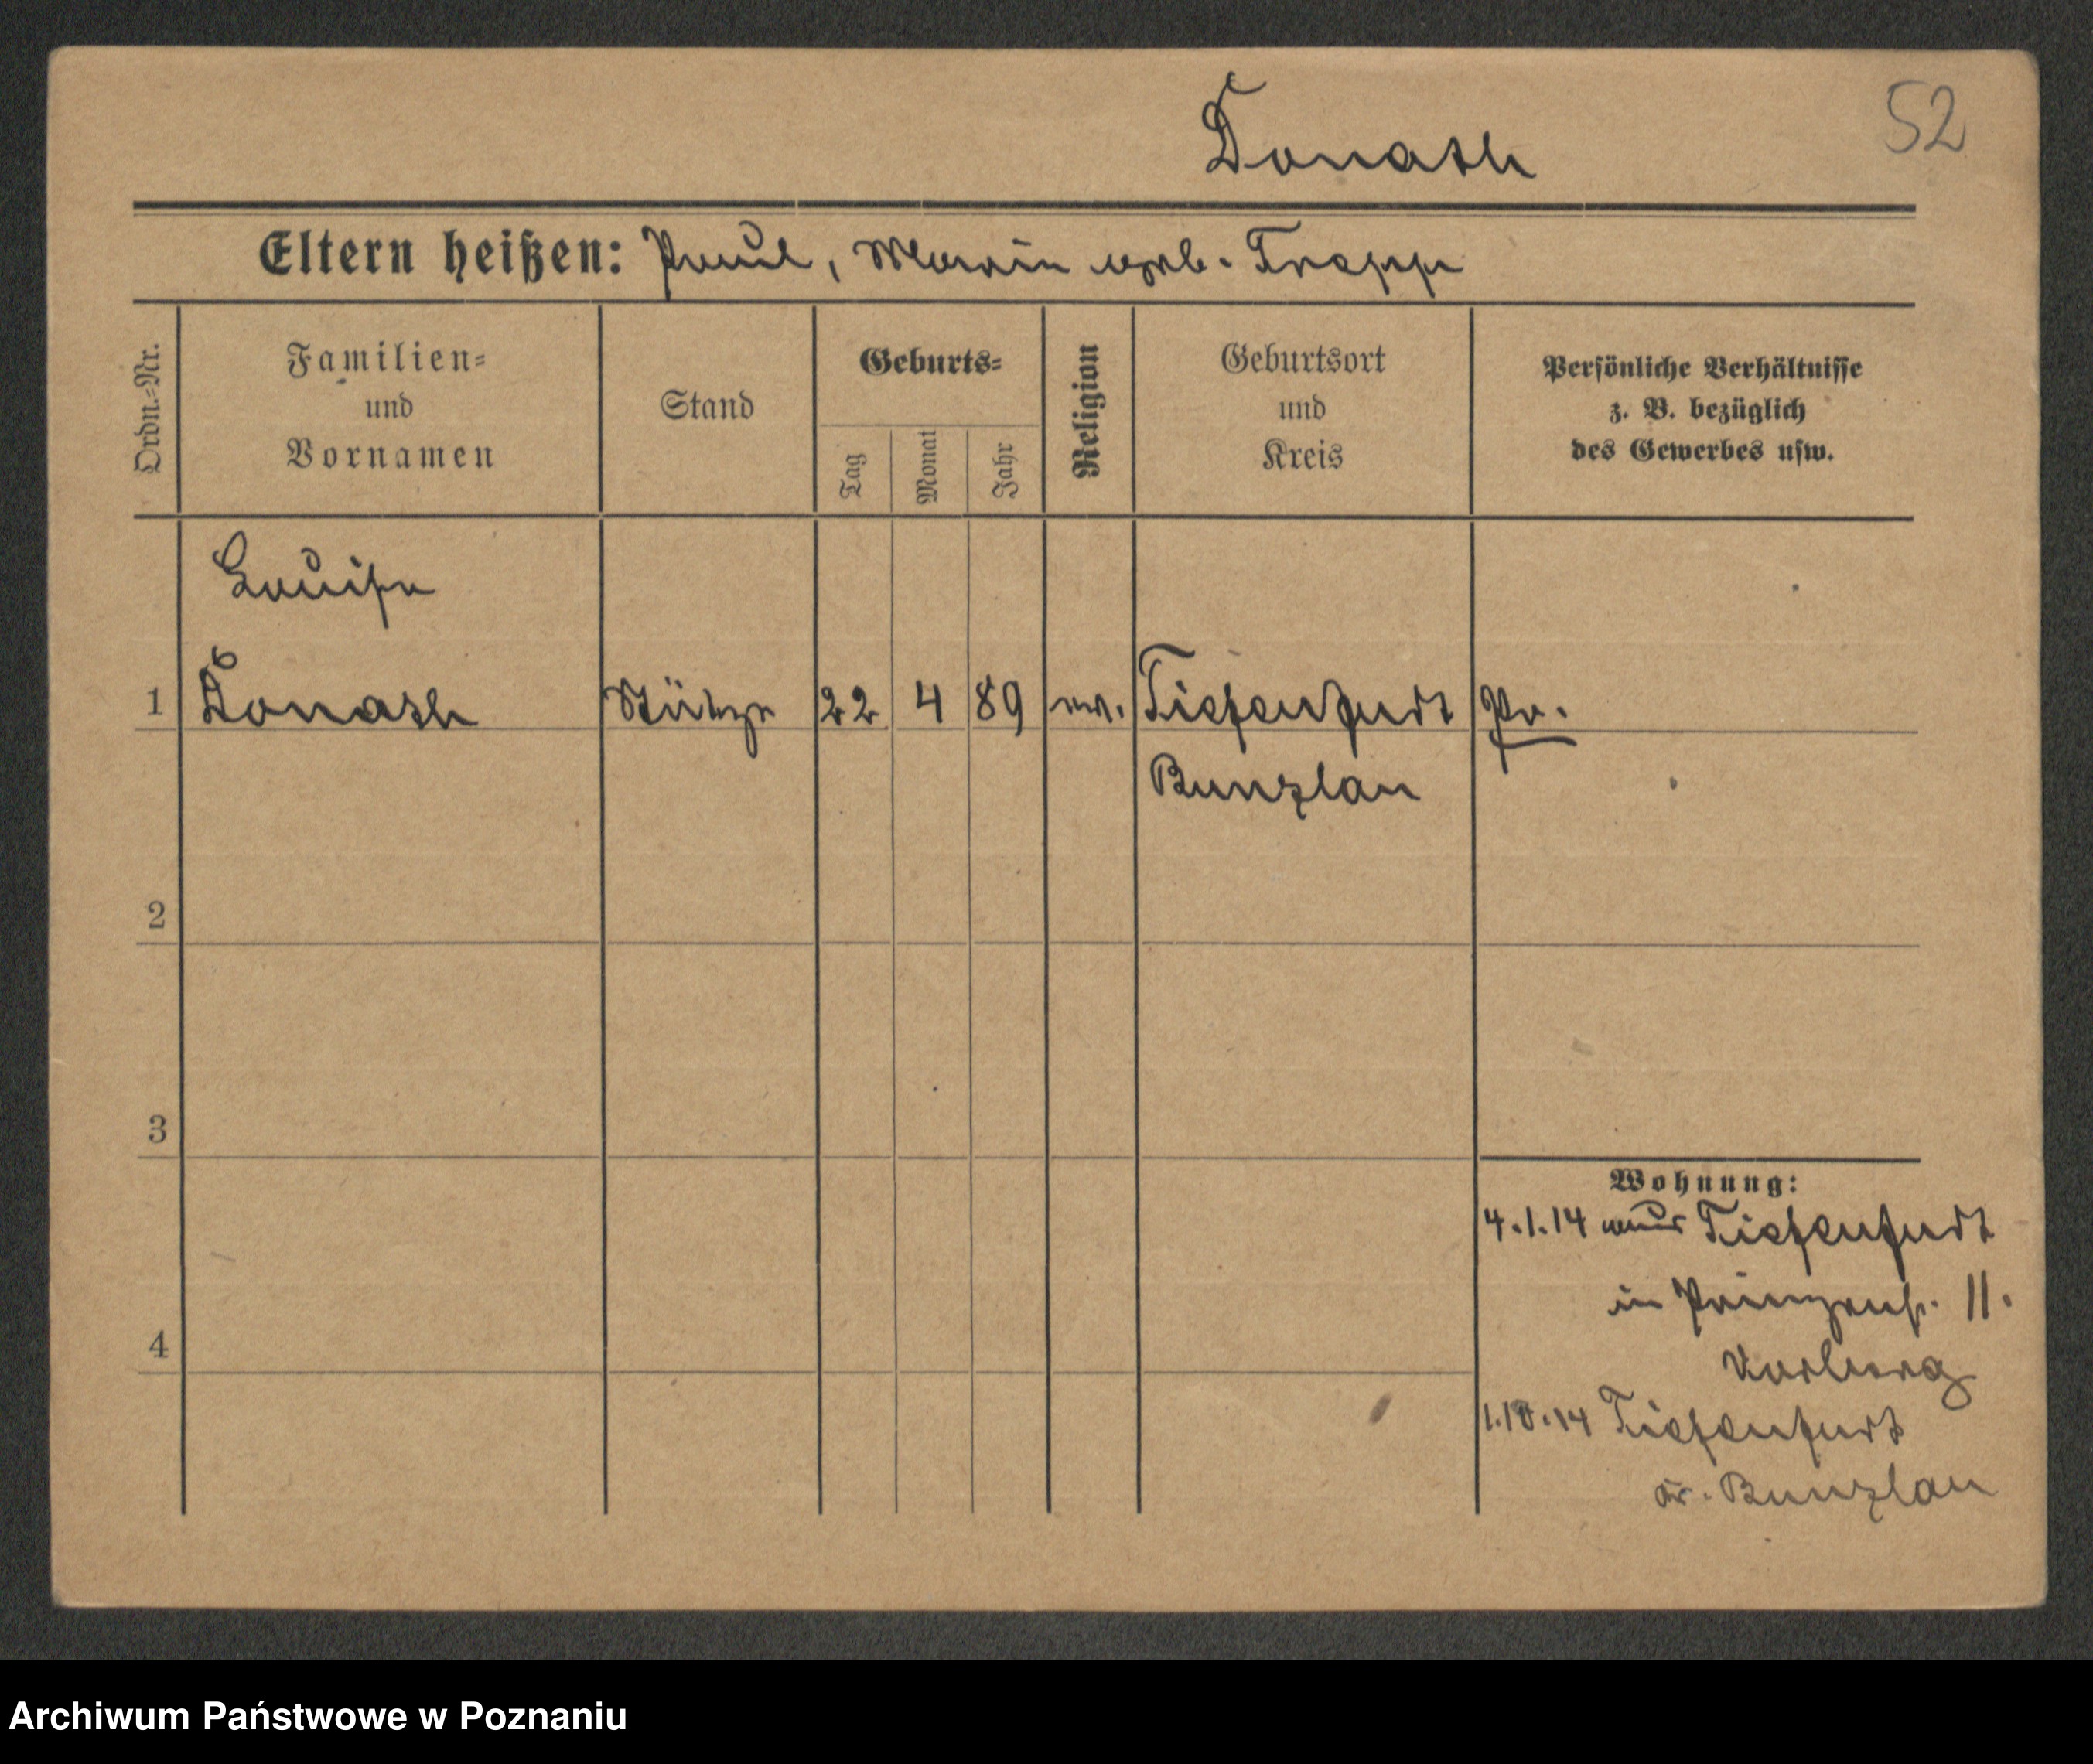 Donath
52
Eltern heißen: Paul, Marie geb. Trapp
Ordn.=Nr.
Familien=
und
Vornamen
Stand
Geburts=
Tag
Monat
Jahr
Religion
Geburtsort
und
Kreis
Persönliche Verhältnisse
z. B. bezüglich
des Gewerbes usw.
Louise
1 Donath Stütze 22 4 89 ev. Tiefenfurt Pr.
Bunzlau
2
3
4
Wohnung:
4.1.14 aus Tiefenfurt
in Prinzenst. 11.
1.10.14 Tiefenfurt
Kr. Bunzlau
Archiwum Państwowe w Poznaniu